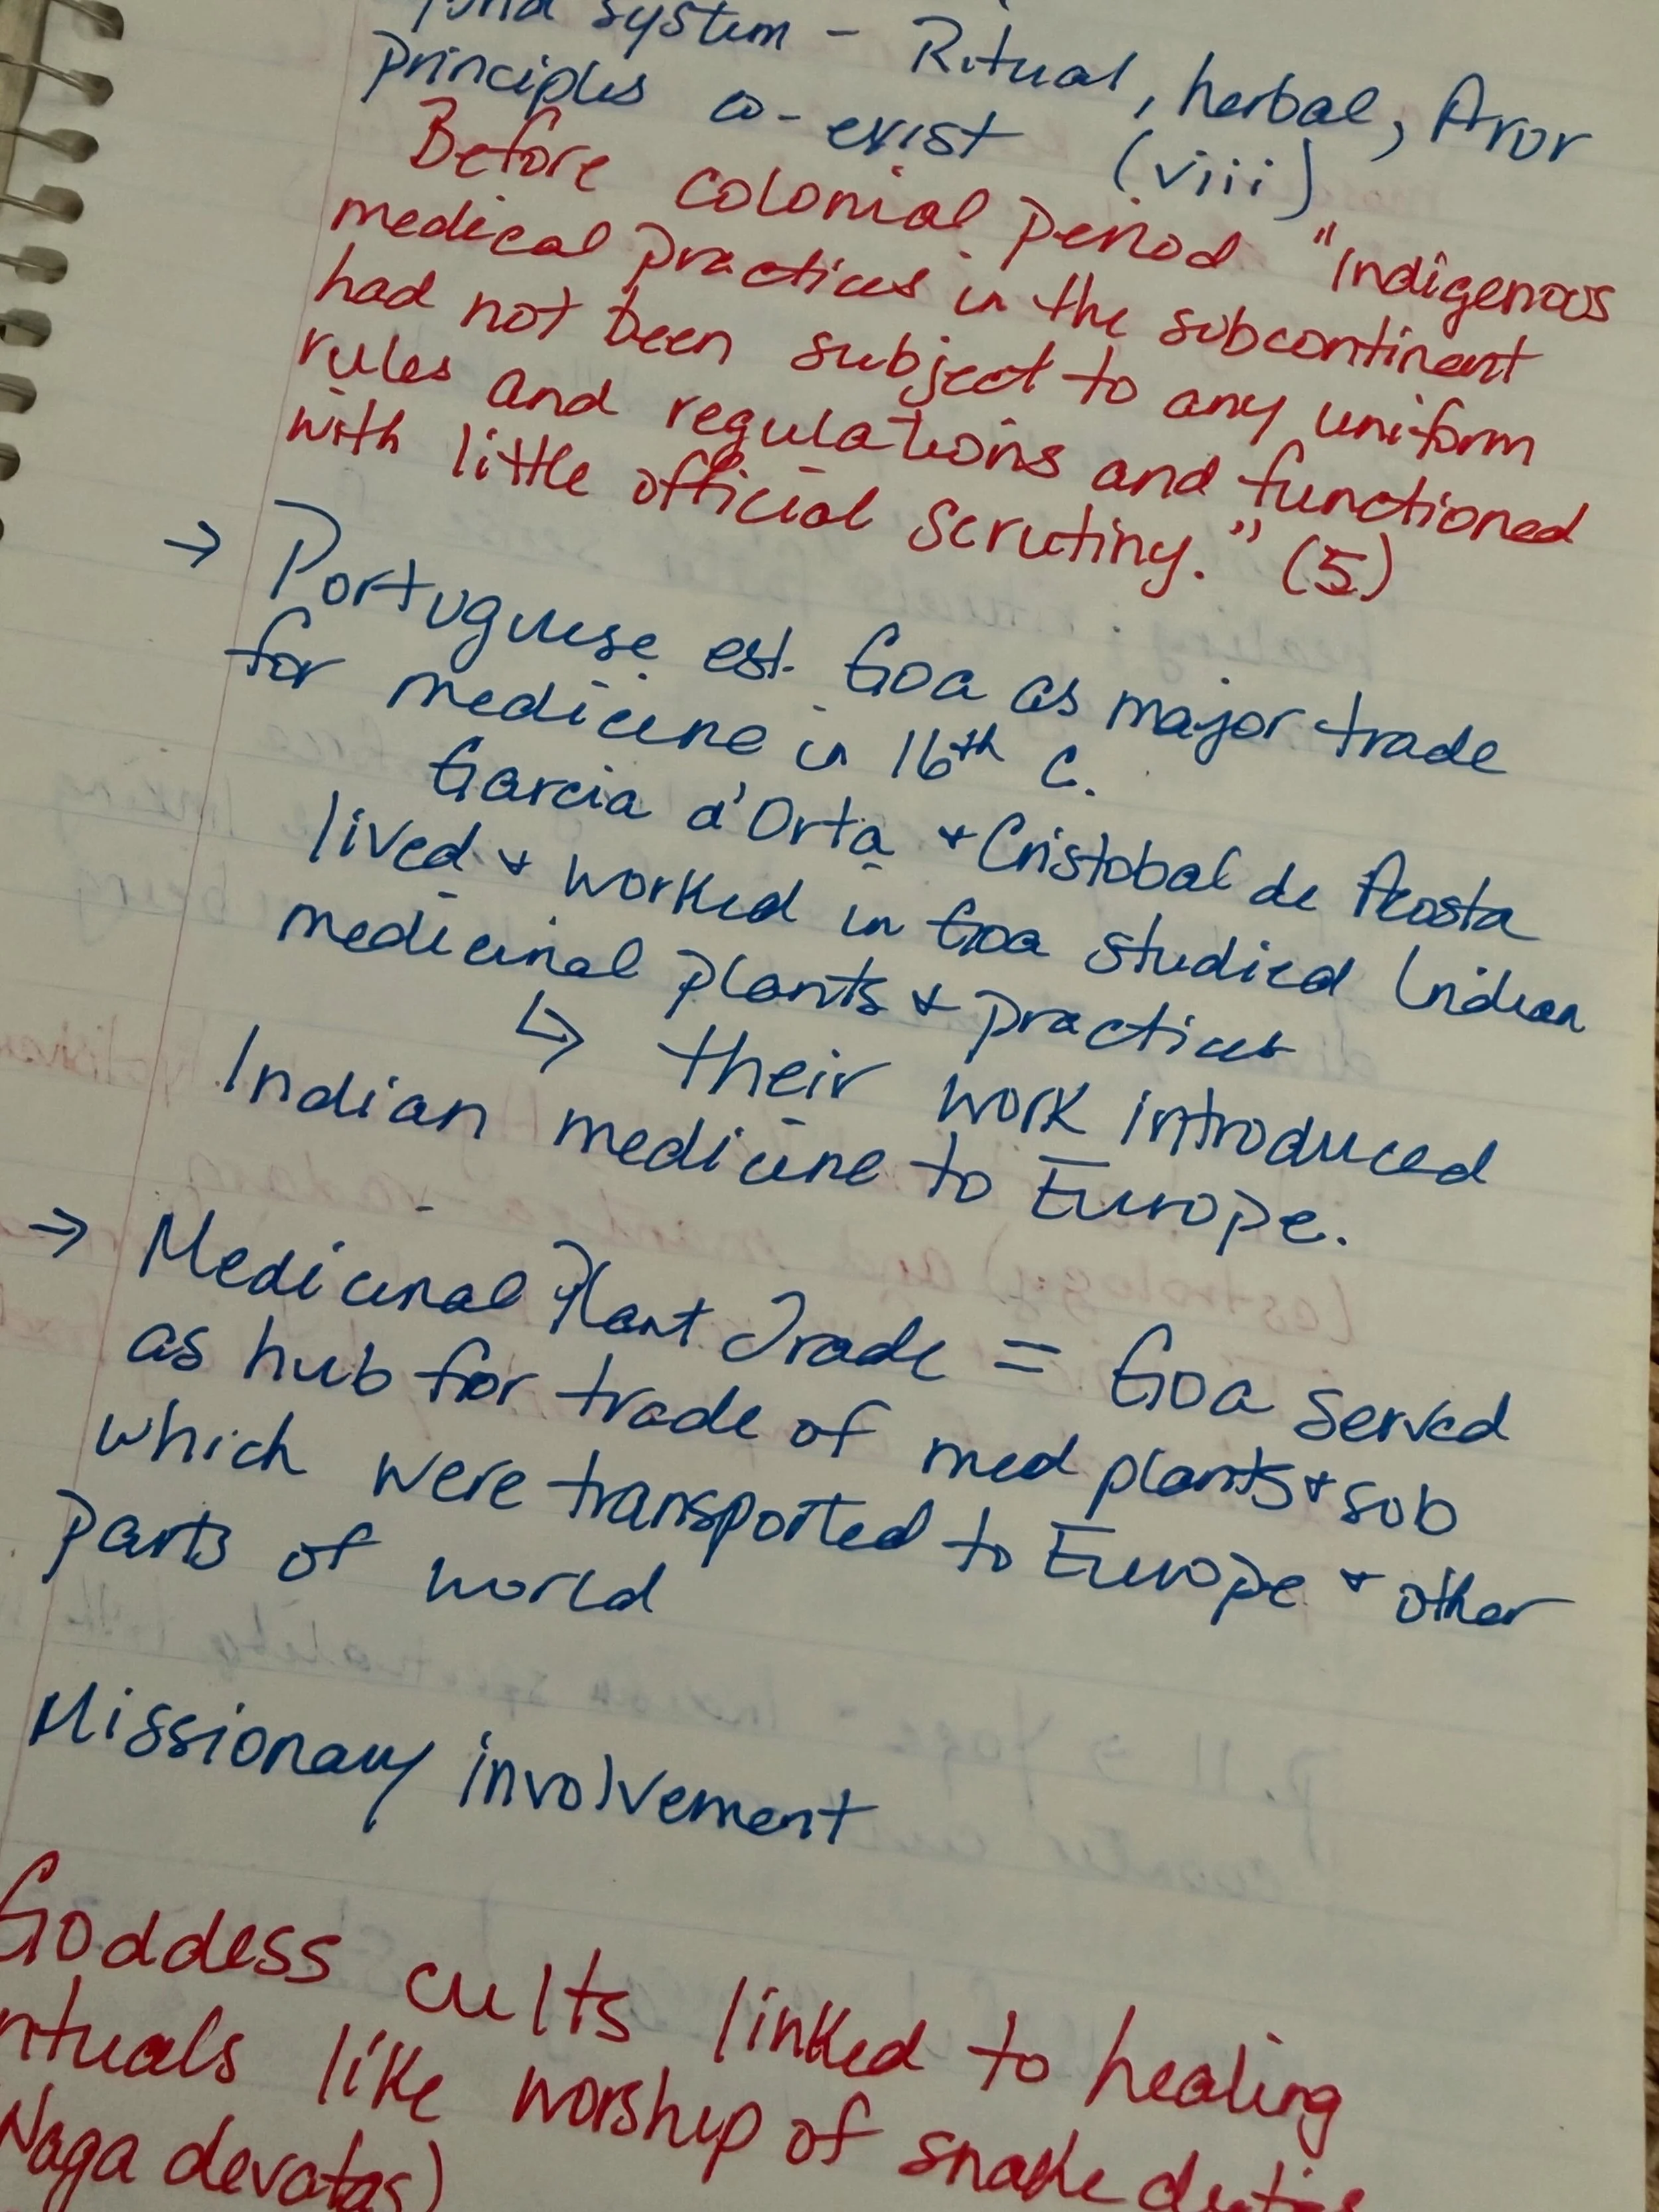 system - Ritual, herbal,
principles co-exist (viii)
Before colonial period "Indigenous
medical practices in the subcontinent
had not been subject to any uniform
rules and regulations and functioned
with little official scrutiny." (5)
→ Portuguese est. Goa as major trade
for medicine in 16th c.
Garcia d'Orta + Cristobal de Acosta
lived + worked in Goa studied Indian
medicinal plants + practices
↳ their work introduced
Indian medicine to Europe.
→ Medicinal Plant Trade = Goa served
as hub for trade of med plants + sub
which were transported to Europe + other
parts of world
Missionary involvement
Goddess cults linked to healing
rituals like worship of snake deities
Naga devatas)